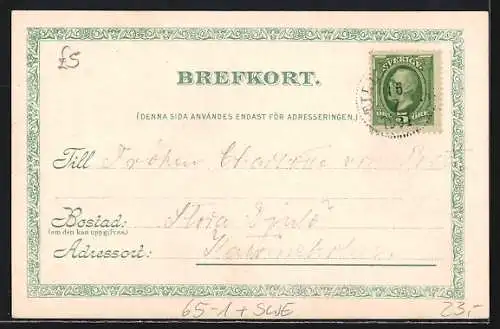 £5
BREFKORT.
SVERIGE
15
5
ÖRE ÖRE
(DENNA SIDA ANVÄNDES ENDAST FÖR ADRESSERINGEN.)
Till Fröken Charlotte von
Bostad: Stora
(om den kan uppgifvas)
Adressort:
65-1 + SWE
23,-